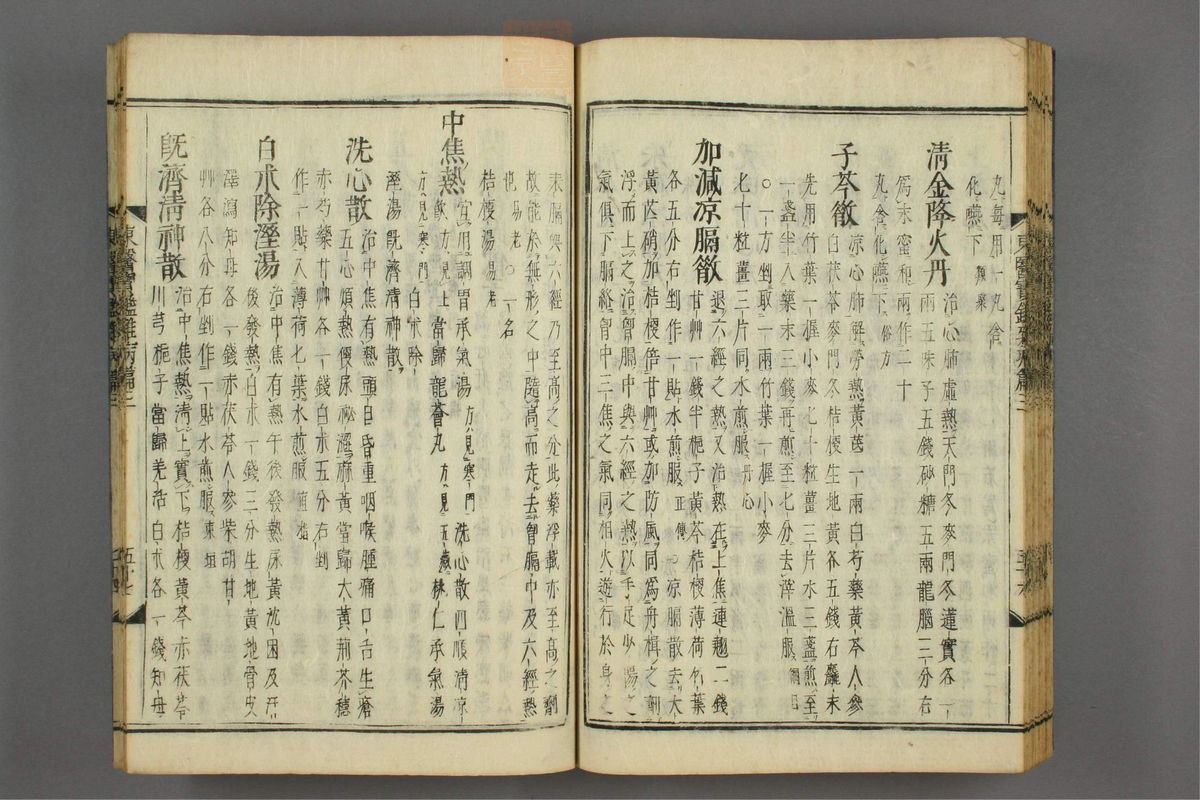 丸每用一丸含
化嚥下類聚
清金降火丹治心肺虛熱天門冬麥門冬蓮實各一
兩五味子五錢砂糖五兩龍腦三分右
爲末蜜和兩作二十
丸含化嚥下俗方
子芩散涼心肺解勞熱黃芪一兩白芍藥黃芩人參
白茯苓麥門冬桔梗生地黃各五錢右麤末
先用竹葉一握小麥七十粒薑三片水三盞煎至
一盞半入藥末三錢再煎至七分去滓溫服綱目
○一方剉取一兩竹葉一握小麥
七十粒薑三片同水煎服丹心
加減涼膈散退六經之熱又治熱在上焦連翹二錢
甘艸一錢半梔子黃芩桔梗薄荷竹葉
各五分右剉作一貼水煎服正傳○涼膈散去大
黃芒硝加桔梗倍甘艸或加防風同爲舟楫之劑
浮而上之治胷膈中與六經之熱以手足少陽之
氣俱下膈絡胷中三焦之氣同相火遊行於身之
東醫寶鑑雜病篇三
末膈與六經乃至高之分此藥浮載亦至高之劑
故能於無形之中隨高而走去胷膈中及六經熱
也易老○一名
桔梗湯易老
中焦熱宜用調胃承氣湯方見寒門洗心散四順淸凉
散方見上當歸龍薈丸方見五藏桃仁承氣湯
方見寒門白朮除
溼湯旣濟淸神散
洗心散治中焦有熱頭目昏重咽喉腫痛口舌生瘡
五心煩熱便尿秘澀麻黃當歸大黃荊芥穗
赤芍藥甘艸各一錢白朮五分右剉
作一貼入薄荷七葉水煎服直指
白朮除溼湯治中焦有熱午後發熱尿黃沈困及汗
後發熱白朮一錢三分生地黃地骨皮
澤瀉知母各一錢赤茯苓人參柴胡甘
艸各八分右剉作一貼水煎服東垣
旣濟淸神散治中焦熱淸上實下桔梗黃芩赤茯苓
川芎梔子當歸羌活白朮各一錢知母
東醫寶鑑雜病篇三